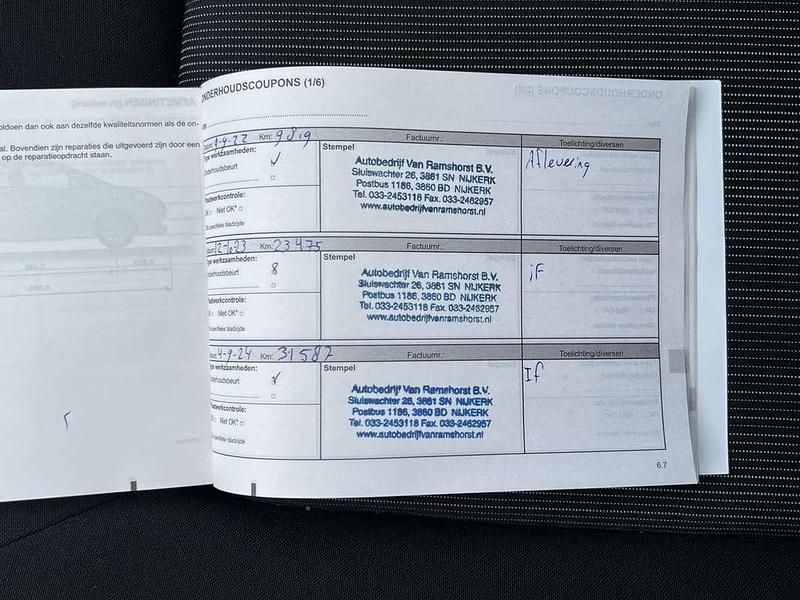 oldoen dan ook aan dezelfde kwaliteitsnormen als de on-
al. Bovendien zijn reparaties die uitgevoerd zijn door een
op de reparatieopdracht staan.
ONDERHOUDSCOUPONS (1/6)
Km: 9819 Factuurnr.: Toelichting/diversen
werkzaamheden:
Onderhoudsbeurt ✓
Stempel
Autobedrijf Van Ramshorst B.V.
Sluiswachter 26, 3861 SN NIJKERK
Postbus 1186, 3860 BD NIJKERK
Tel. 033-2453118 Fax. 033-2462957
www.autobedrijfvanramshorst.nl
Aflevering
Plaatwerkcontrole:
OK □ Niet OK* □
specifieke bladzijde
Km: 23475 Factuurnr.: Toelichting/diversen
Type werkzaamheden:
Onderhoudsbeurt
Stempel
Autobedrijf Van Ramshorst B.V.
Sluiswachter 26, 3861 SN NIJKERK
Postbus 1186, 3860 BD NIJKERK
Tel. 033-2453118 Fax. 033-2462957
www.autobedrijfvanramshorst.nl
iF
Plaatwerkcontrole:
Niet OK* □
specifieke bladzijde
4-9-24 Km: 31587 Factuurnr.: Toelichting/diversen
werkzaamheden:
Onderhoudsbeurt ✓
Stempel
Autobedrijf Van Ramshorst B.V.
Sluiswachter 26, 3861 SN NIJKERK
Postbus 1186, 3860 BD NIJKERK
Tel. 033-2453118 Fax. 033-2462957
www.autobedrijfvanramshorst.nl
If
Plaatwerkcontrole:
Niet OK* □
specifieke bladzijde
6.7